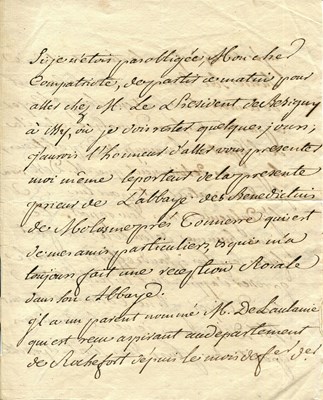 Si je n'étois pas obligée, Mon cher
Compatriote, de partir ce matin pour
aller chez M. Le Président de
à Issy, où je dois rester quelques jours,
j'aurois l'honneur d'aller vous presenter
moi même le porteur de la presente
prieur de L'abbaye des Benedictins
de Molosme près Tonnerre qui est
de mes amis particuliers, et qui m'a
toujours fait une réception Roiale
dans son Abbaye.
il a un parent nommé M. De Laulanie
qui est reçu aspirant au departement
de Rochefort depuis le mois de